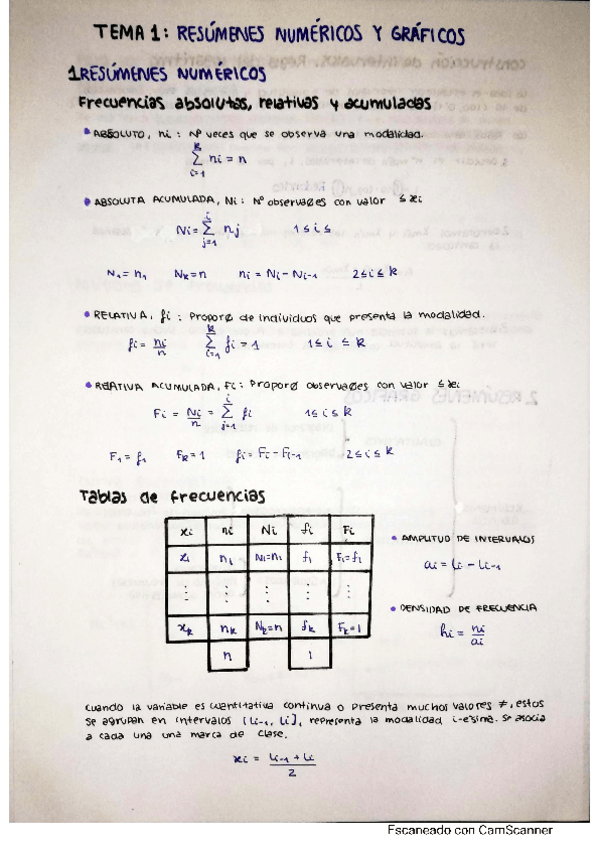 TEMA 1: RESÚMENES NUMÉRICOS Y GRÁFICOS
1.RESÚMENES NUMÉRICOS
Frecuencias absolutas, relativas y acumuladas
• ABSOLUTO, ni : Nº veces que se observa una modalidad.
k
∑ ni = n
i=1
• ABSOLUTA ACUMULADA, Ni : Nº observaØes con valor ≤ xi
i
Ni = ∑ nj 1 ≤ i ≤
j=1
N₁ = n₁ Nk = n ni = Ni − Ni-1 2 ≤ i ≤ k
• RELATIVA, fi : ProporØ de individuos que presenta la modalidad.
k
fi = ni/n ∑ fi = 1 1 ≤ i ≤ k
i=1
• RELATIVA ACUMULADA, Fi : ProporØ observaØes con valor ≤ xi
i
Fi = Ni/n = ∑ fi 1 ≤ i ≤ k
j=1
F₁ = f₁ Fk = 1 fi = Fi − Fi-1 2 ≤ i ≤ k
Tablas de frecuencias
xi ni Ni fi Fi
x₁ n₁ N₁=n₁ f₁ F₁=f₁
⋮ ⋮ ⋮ ⋮ ⋮
xk nk Nk=n fk Fk=1
n 1
• AMPLITUD DE INTERVALOS
ai = Li − Li-1
• DENSIDAD DE FRECUENCIA
hi = ni/ai
Cuando la variable es cuantitativa continua o presenta muchos valores ≠, estos
se agrupan en intervalos (Li-1, Li], representa la modalidad i-ésima. Se asocia
a cada una una marca de clase.
xi = Li-1 + Li / 2
Escaneado con CamScanner